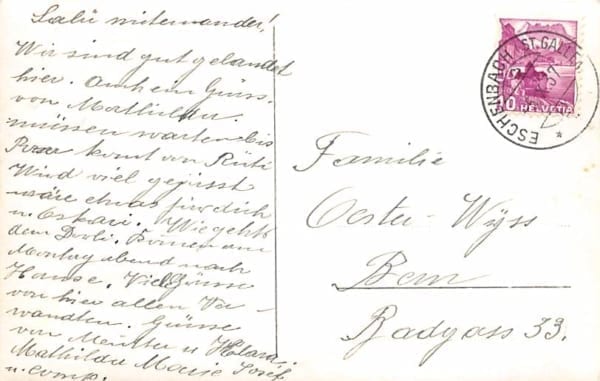 Salü miteinander!
Wir sind gut gelandet
hier. Auch ein Güss.
von Mathildu.
müssen warten bis
komt von Rüti
Wird viel gejasst
wäre etwas für dich
u. Oskari. Wie gehts
dem Dorli. Kömen am
Montag abend nach
Hause. Viel Grüsse
von hier allen Ver-
wandten. Grüsse
von Meisten u Klara,
Mathildu Marie Josef
u. comp.
ESCHENBACH (ST. GALLEN)
37
10 HELVETIA
Familie
Oester-Wyss
Bern
Badgass 33.